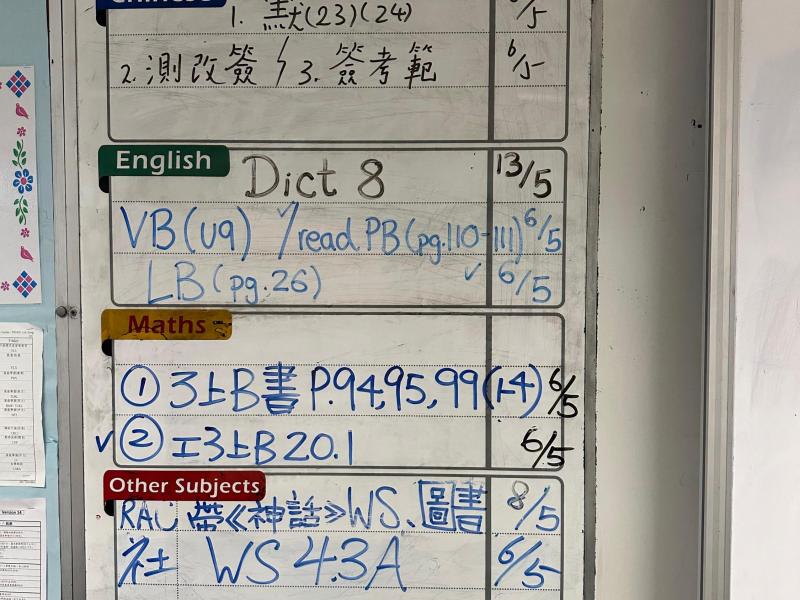 Chinese 1. 默(23)(24) 6/5
2. 測改簽 / 3. 簽考範 6/5
English Dict 8 13/5
VB(u9) / read PB(pg.110-111) 6/5
LB(pg.26) ✓ 6/5
Maths
① 3上B書 P.94,95,99(1-4) 6/5
✓ ② 工3上B 20.1 6/5
Other Subjects
帶《神話》WS、圖書 8/5
社 WS 4.3A 6/5